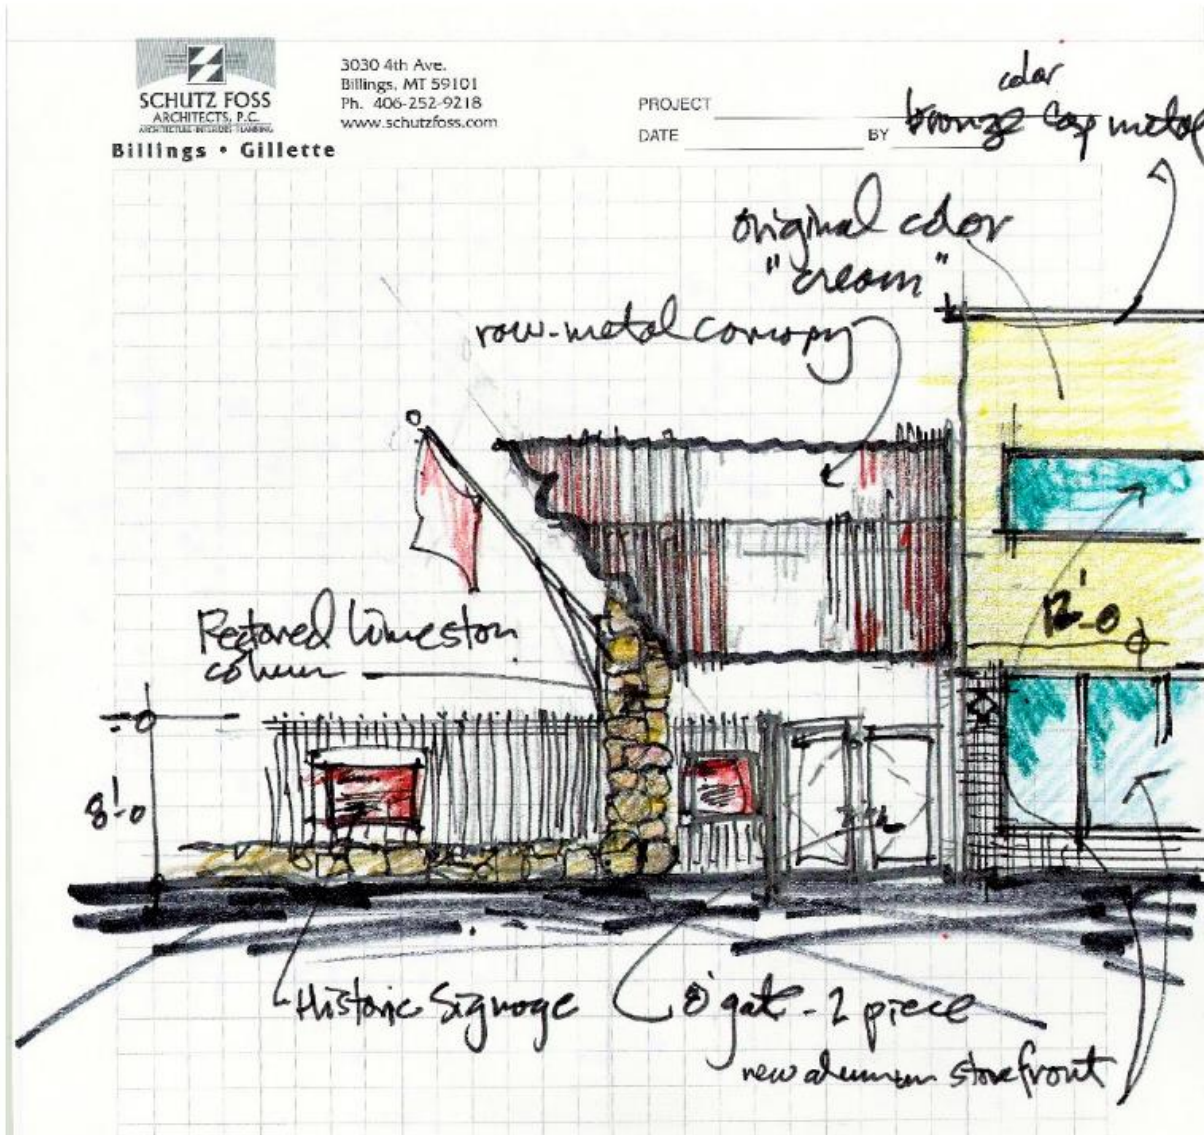 SCHUTZ FOSS
ARCHITECTS, P.C.
ARCHITECTURE · INTERIORS · PLANNING
Billings • Gillette
3030 4th Ave.
Billings, MT 59101
Ph. 406-252-9218
www.schutzfoss.com
PROJECT
DATE
BY
color
bronze cap metal
original color
"cream"
raw-metal canopy
12'-0
Restored limeston
column
8'-0
Historic Signage
8' gate - 2 piece
new aluminum storefront